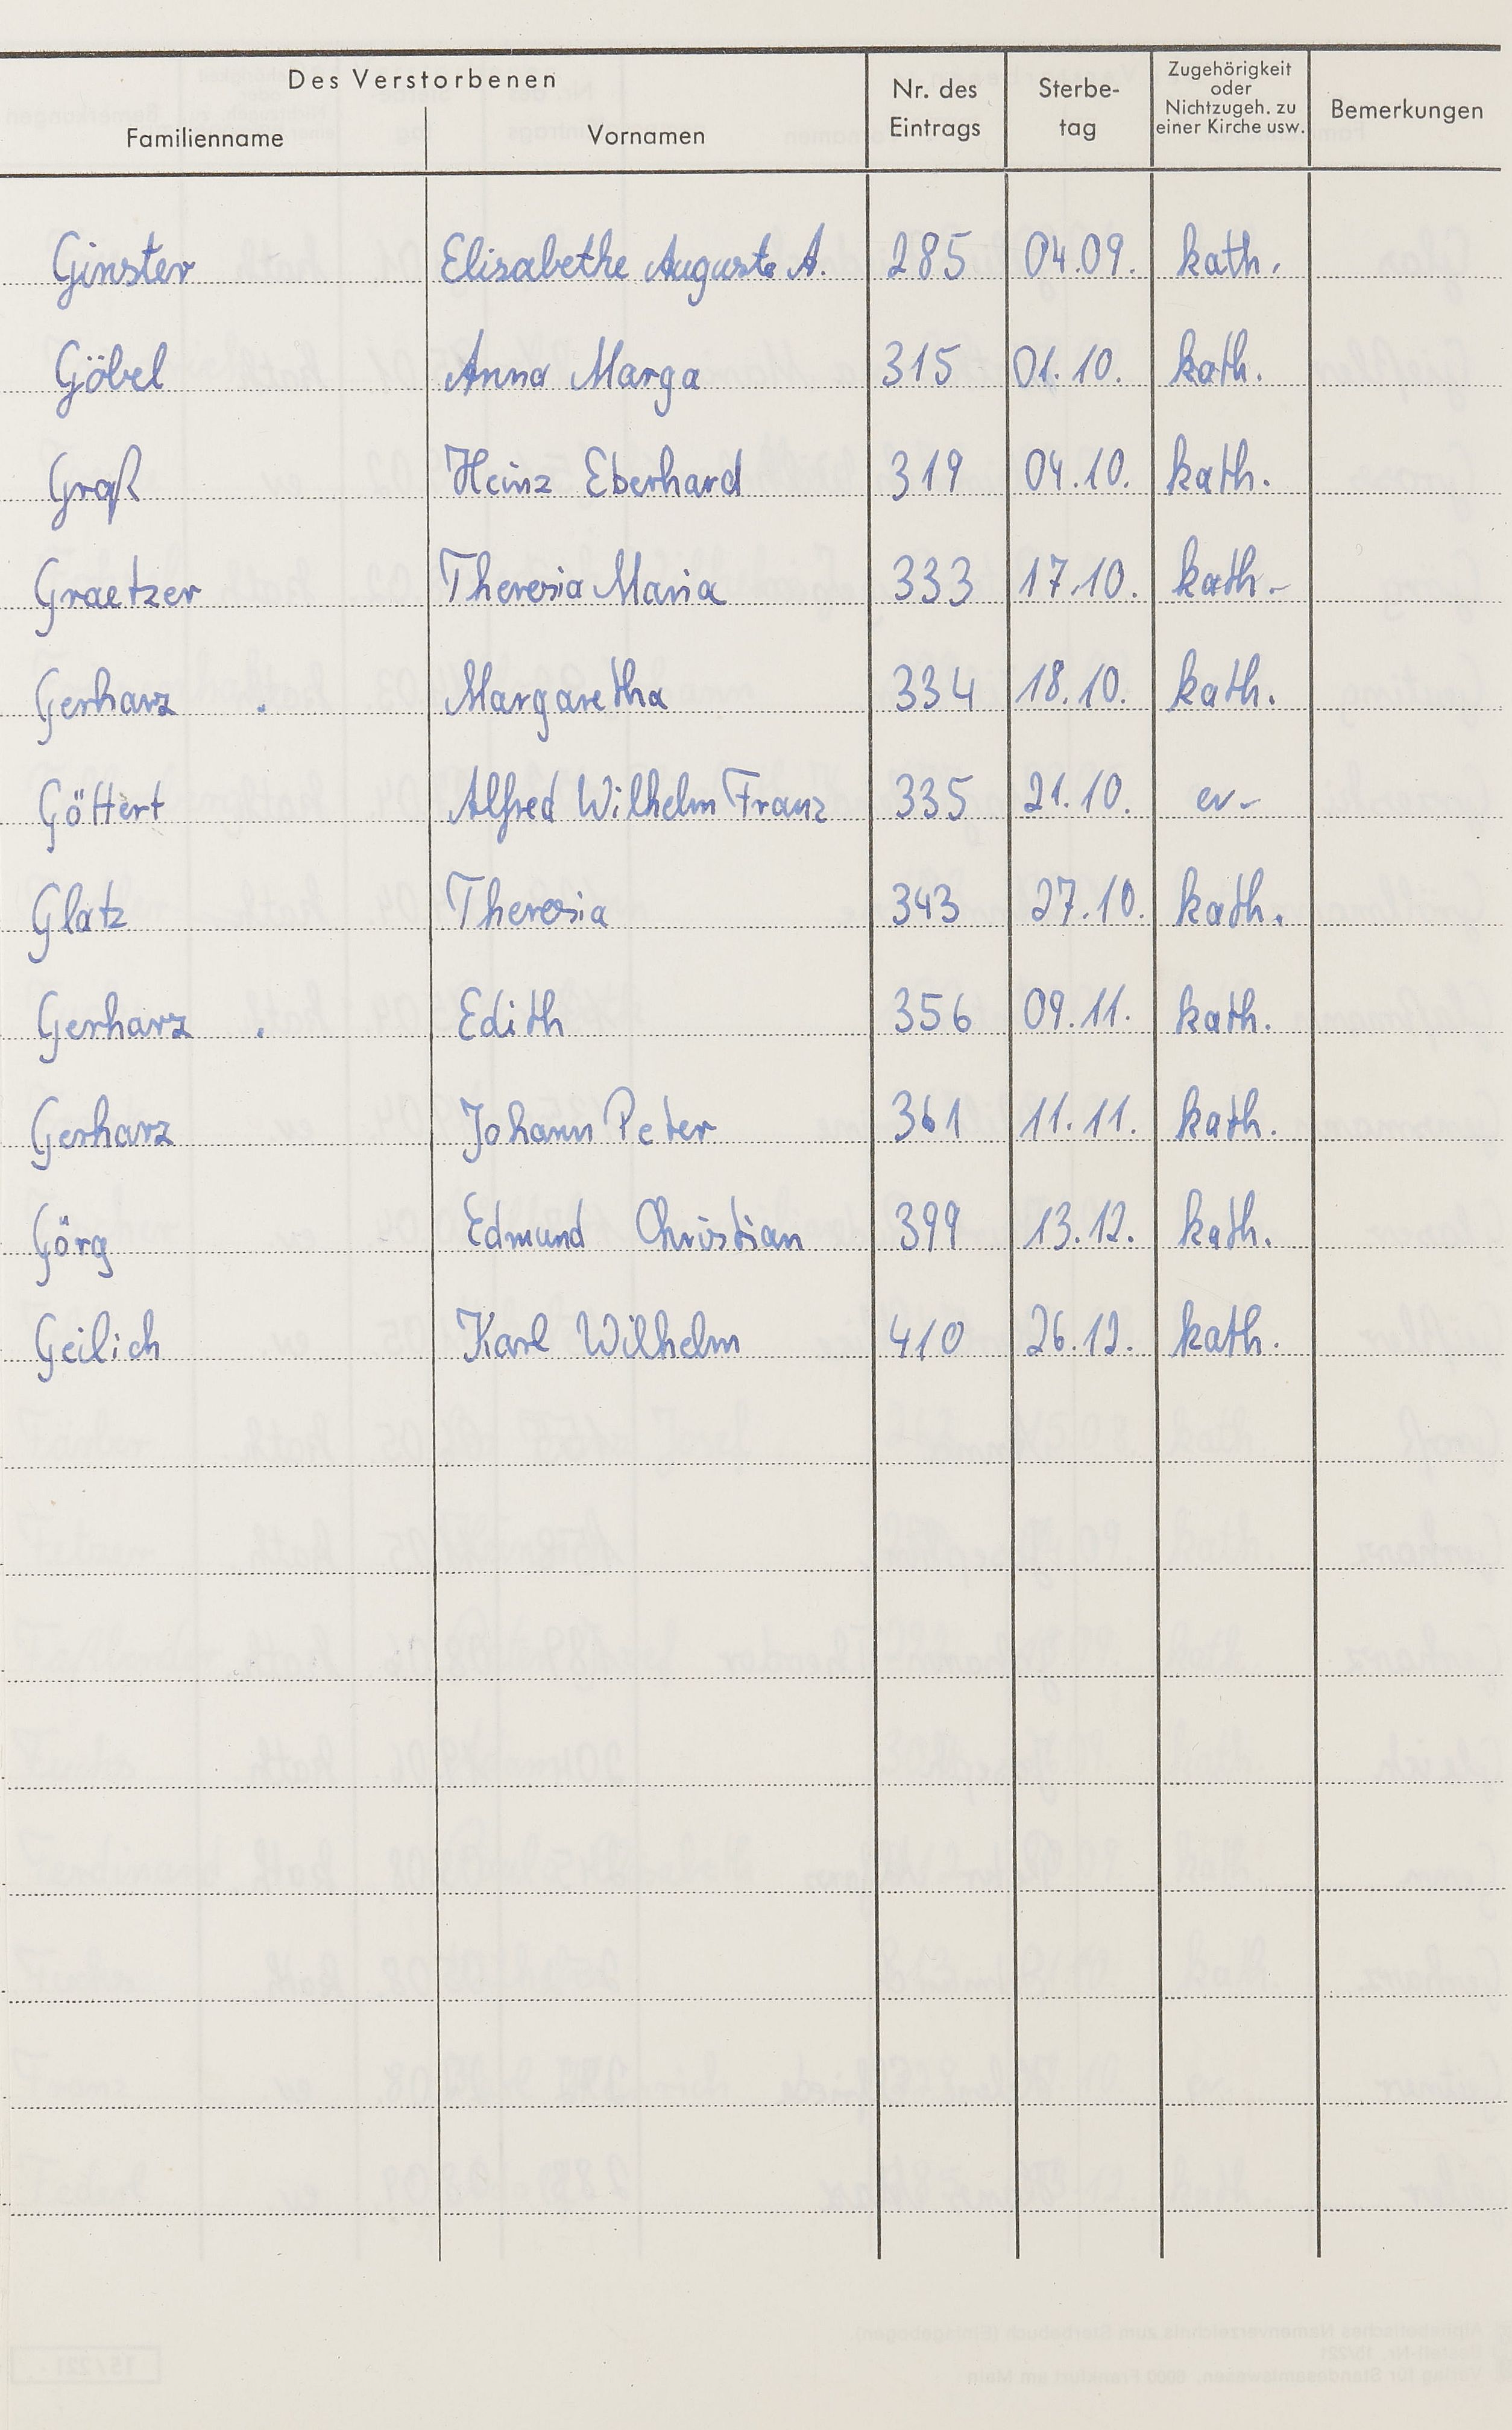 Des Verstorbenen
Familienname
Vornamen
Nr. des Eintrags
Sterbe-tag
Zugehörigkeit oder Nichtzugeh. zu einer Kirche usw.
Bemerkungen
Ginster Elisabethe Auguste A. 285 04.09. kath.
Göbel Anna Marga 315 01.10. kath.
Groß Heinz Eberhard 319 04.10. kath.
Graetzer Theresia Maria 333 17.10. kath.
Gerharz Margaretha 334 18.10. kath.
Göttert Alfred Wilhelm Franz 335 21.10. ev.
Glatz Theresia 343 27.10. kath.
Gerharz Edith 356 09.11. kath.
Gerharz Johann Peter 361 11.11. kath.
Görg Edmund Christian 399 13.12. kath.
Geilich Karl Wilhelm 410 26.12. kath.